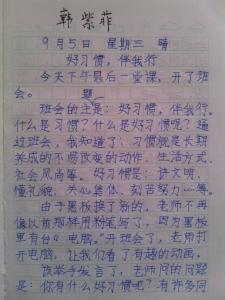 韩紫菲
9月5日 星期三 晴
好习惯，伴我行
今天下午最后一堂课，开了班
会。 题
班会的主是：好习惯，伴我行。
什么是习惯？什么是好习惯呢？通
过班会，我知道了：习惯就是长期
养成的不易改变的动作、生活方式、
社会风尚等。好习惯是：讲文明、
懂礼貌、关心集体、刻苦努力…等。
由于黑板换了新的，老师不再
像以前那样用粉笔写了，因为黑板
里有台“电脑。”开班会了，老师打
开电脑，让我们看了有趣的动画，
该举手发言了，老师问的问题
是：你有什么好习惯呢？有许多同